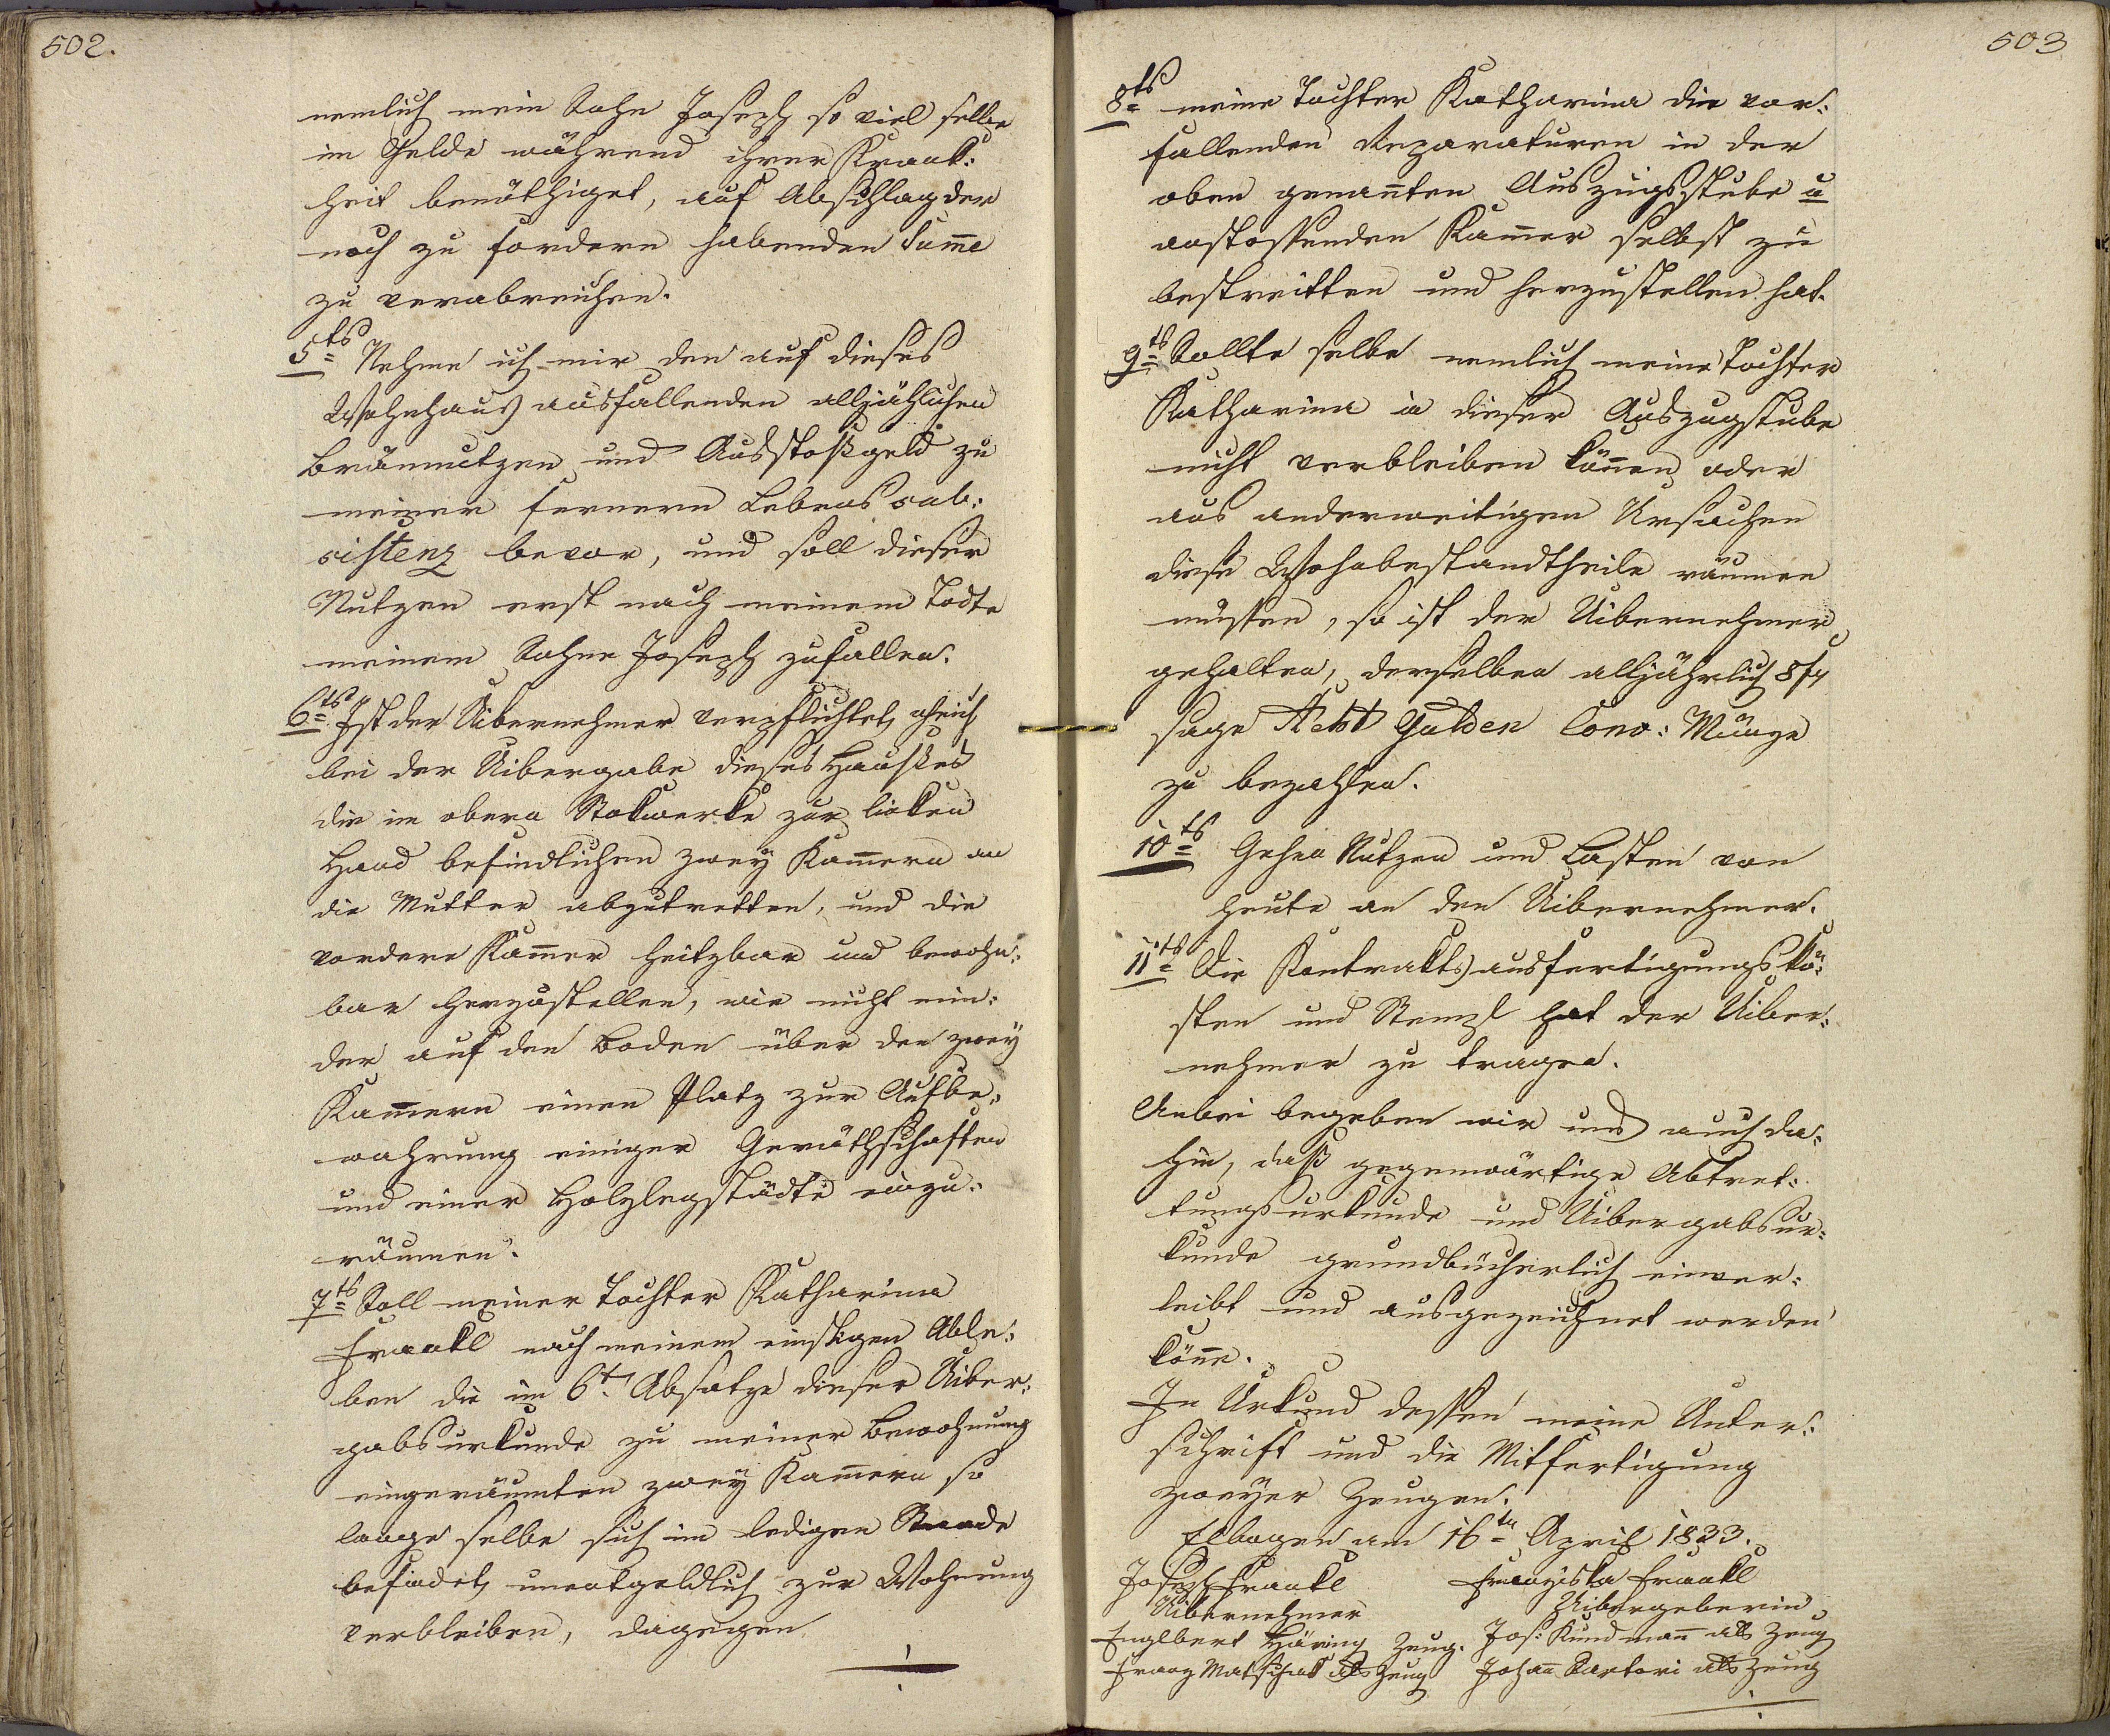 502.
nemlich mein Sohn Joseph so viel selbe
im Gelde während ihrer Krank:
heit benöthiget, auf Abschlag der
noch zu fordern habenden Summe
zu verabreichen.
5ts Nehme ich mir den auf dieses
Wohnhaus ausfallenden alljährlichen
Bräunutzen und Ausstoßgeld zu
meiner fernern Lebens sub:
sistenz bevor, und soll dieser
Nutzen erst nach meinem Todte
meinem Sohne Joseph zufallen.
6ts Ist der Uibernehmer verpflichtet, gleich
bei der Uibergabe dieses Hauses
die im obern Stokwerke zur linken
Hand befindlichen zwey Kammern an
die Mutter abzutretten, und die
vordere Kammer heitzbar und bewohn:
bar herzustellen, wie nicht min:
der auf den Boden über den zwey
Kammern einen Platz zur Aufbe:
wahrung einiger Geräthschaften
und einer Holzlegstädte einzu:
räumen.
7ts Soll meiner Tochter Katharina
Frankl nach meinem einstigen Able:
ben die im 6t. Absatze dieser Uiber:
gabsurkunde zu meiner Bewohnung
eingeräumten zwey Kammern so
lange selbe sich im ledigen Stande
befindet, unentgeldlich zur Wohnung
verbleiben, dagegen
503
8ts meine Tochter Katharina die vor:
fallenden Reparaturen in der
oben genannten Auszugsstube u
anstossenden Kammer selbst zu
bestreitten und herzustellen hat.
9ts Sollte selbe nemlich meine Tochter
Katharina in dieser Auszugstube
nicht verbleiben können oder
aus anderweitigen Ursachen
diese Wohnbestandtheile räumen
müssen, so ist der Uibernehmer
gehalten, derselben alljährlich 8 f
sage Acht Gulden Conv: Münze
zu bezahlen.
10ts Gehen Nutzen und Lasten von
heute an den Uibernehmer.
11ts Die Kontraktsausfertigungskö:
sten und Stempl hat der Uiber:
nehmer zu tragen.
Anbei begeben wir uns auch da:
hin, daß gegenwärtige Abtret:
tungsurkunde und Uibergabsur:
kunde grundbücherlich einver:
leibt und ausgezeichnet werden
könne.
In Urkund dessen meine Unter:
schrift und die Mitfertigung
zweyer Zeugen.
Elbogen am 16ten April 1833.
Joseph Frankl Franziska Frankl
Uibernehmer Uibergeberin
Englbert Häring Zeug. Jos: Kundmann als Zeug
Franz Matschak als Zeug Johann Sartori als Zeug